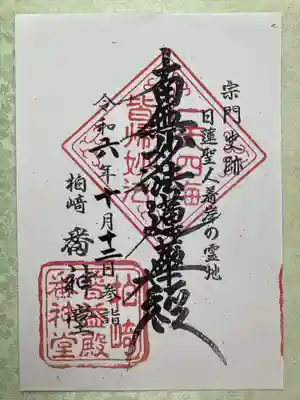 宗門史跡
日蓮聖人着岸の霊地
南無妙法蓮華経
令和六年十月十二日参詣
柏崎 番神堂
皆帰妙法
柏崎
番神堂